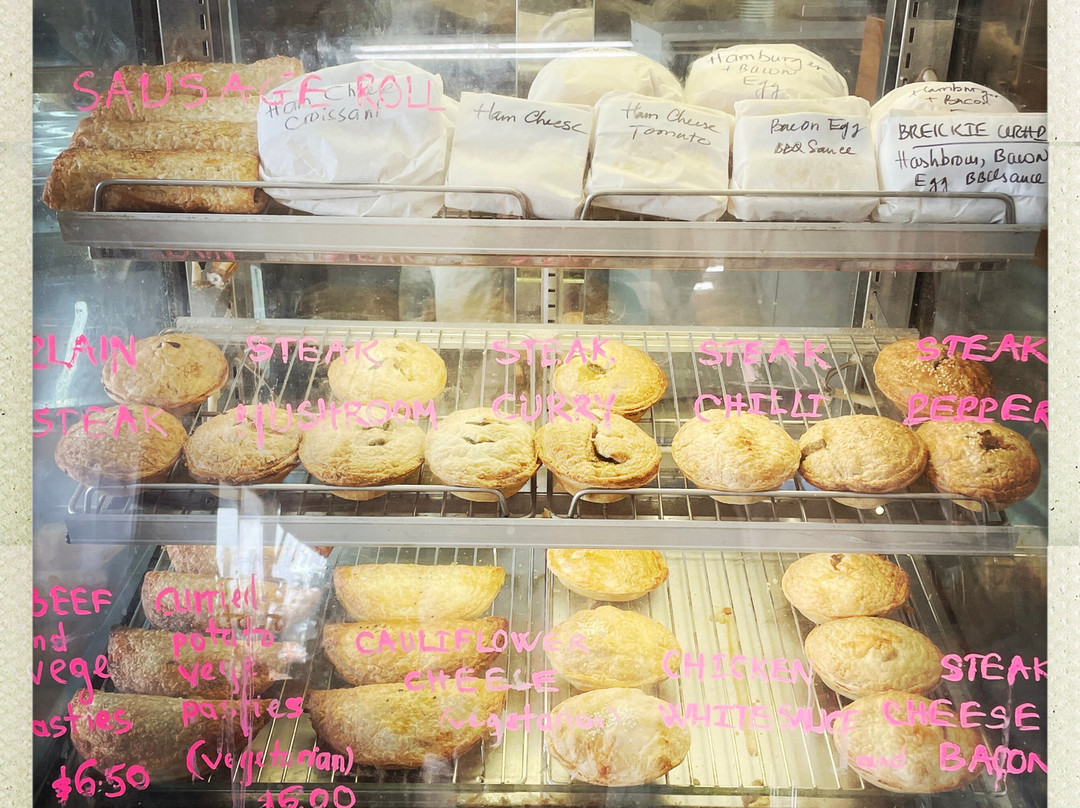 SAUSAGE ROLL
Ham Cheese
Croissant
Ham Cheese
Ham Cheese
Tomato
Hamburger
+ Bacon
Egg
Bacon Egg
BBQ Sauce
Hamburg
+ Bacon
BREKKIE
Hashbrown, Bacon
Egg BBQ sauce
PLAIN
STEAK
STEAK
MUSHROOM
STEAK
CURRY
STEAK
CHILLI
STEAK
PEPPER
BEEF
nd
vege
asties
$6.50
curried
potato
vege
pasties
(vegetarian)
$6.00
CAULIFLOWER
CHEESE
(vegetarian)
CHICKEN
WHITE SAUCE
STEAK
CHEESE
and BACON